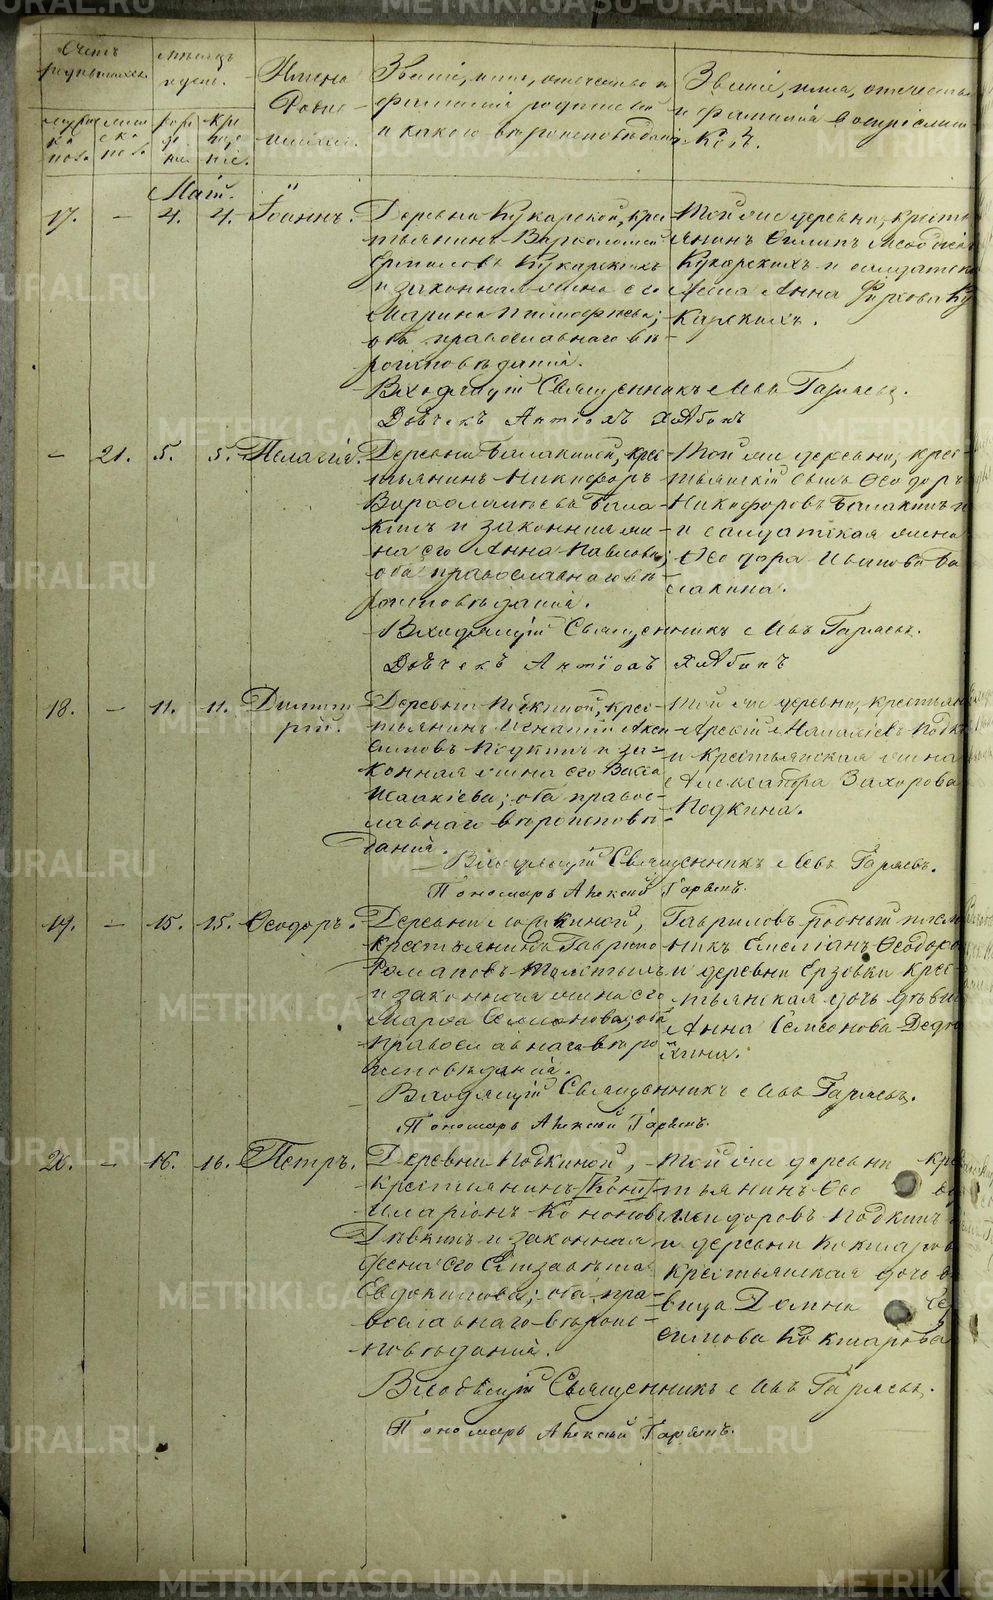 Счетъ родившихся.
Мѣсяцъ и день.
Имена родившихся.
Званіе, имя, отчество и фамилія родителей и какого вѣроисповѣданія
Званіе, имя, отчество и фамилія воспріемниковъ.
мужска полъ
женска полъ
рожденія
крещенія
Май.
17. — 4. 4. Іоаннъ.
Деревни Кукарской, крес-
тьянинъ Варѳоломей
Ермиловъ Кукарскихъ
и законная жена его
Марина Тимофѣева;
оба православнаго вѣ-
роисповѣданія.
Той же деревни, кресть-
янинъ Филипъ
Кукарскихъ и солдатска
жена Анна Ку
карскихъ.
Приходскій Священникъ Левъ Гаряевъ.
Дьячекъ
— 21. 5. 5. Пелагія.
Деревни Балакиной, крес-
тьянинъ Никифоръ
Варѳоломѣевъ Бала-
кинъ и законная же-
на его Анна Павлова;
оба православнаго вѣ-
роисповѣданія.
Той же деревни, крес-
тьянскій сынъ Ѳеодоръ
Никифоровъ Балакинъ
и солдатская жена
Ѳеодора Иванова Ба
лакина.
Приходскій Священникъ Левъ Гаряевъ.
Дьячекъ
18. — 11. 11. Димит-
рій.
Деревни Подкиной, крес-
тьянинъ Игнатій
Подкинъ и за-
конная жена его Васса
Исаакіева; оба право-
славнаго вѣроисповѣ-
данія.
Той же деревни, крестьян
Подк
и крестьянская жена
Александра Захарова
Подкина.
Приходскій Священникъ Левъ Гаряевъ.
Пономарь Алексѣй Гаряевъ.
19. — 15. 15. Ѳеодоръ.
Деревни
крестьянинъ Гаврило
Романовъ
и законная жена его
Марѳа Семионова; оба
православнаго вѣро
исповѣданія.
Гавриловъ родный племя
никъ Емеліанъ Ѳеодоро
и деревни Ерзовки крес-
тьянская дочь дѣви
Анна Семсонова Дедю
хина.
Приходскій Священникъ Левъ Гаряевъ.
Пономарь Алексѣй Гаряевъ.
20. — 16. 16. Петръ.
Деревни Подкиной,
крестьянинъ
Иларіонъ Кононовъ
и законная
жена его Елизавета
Евдокимова; оба пра-
вославнаго вѣроис-
повѣданія.
Той же деревни кре
тьянинъ Ѳео
Исидоровъ Подкинъ
и деревни Кокшарово
крестьянская дочь дѣ
вица Домна
Кокшарова
Приходскій Священникъ Левъ Гаряевъ.
Пономарь Алексѣй Гаряевъ.
METRIKI.GASO-URAL.RU